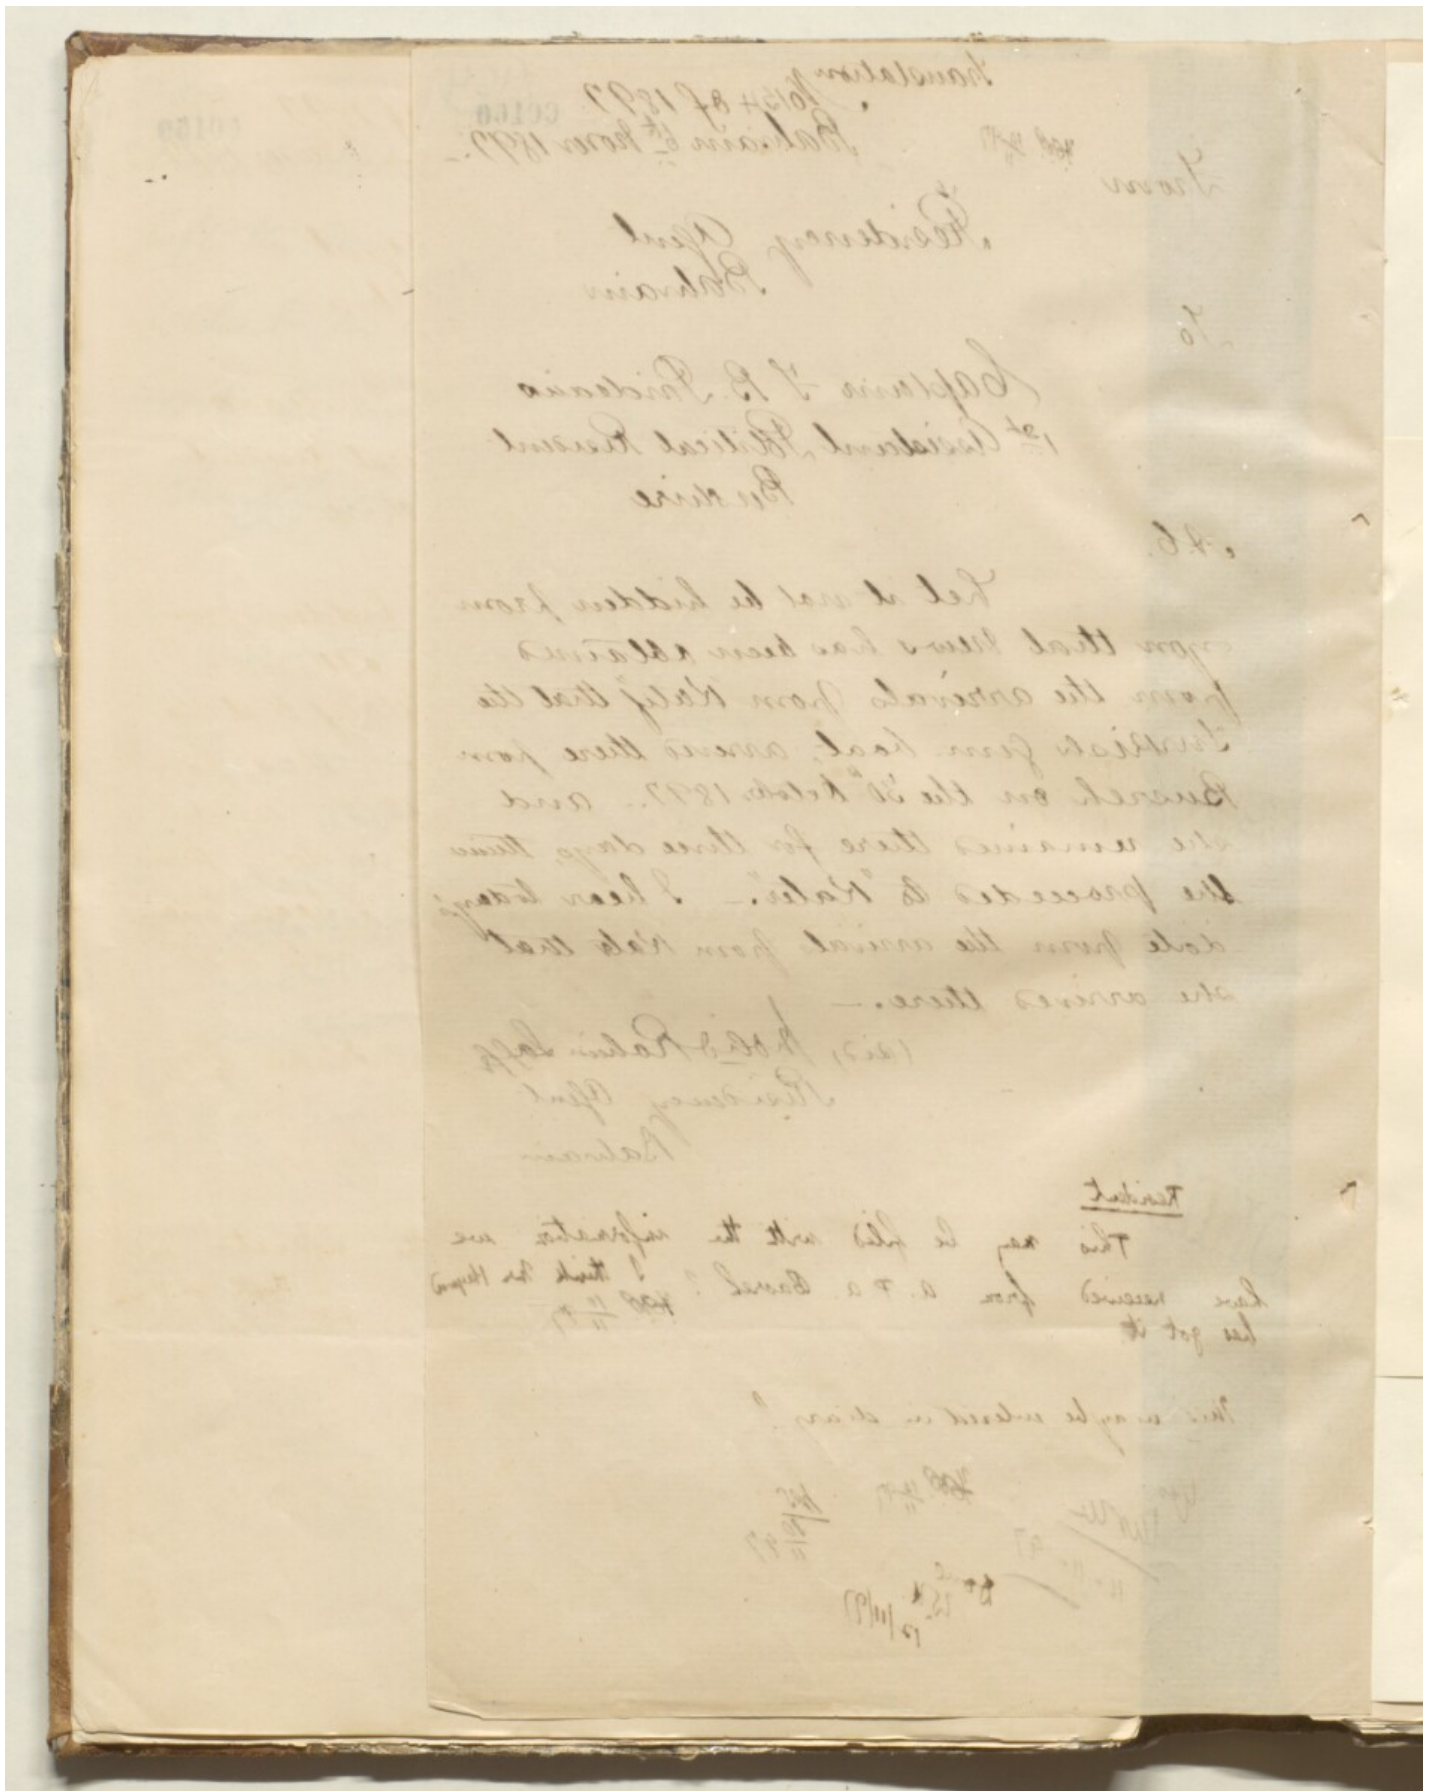 Translation
No 154 of 1897
Bahrain 6th Novr 1897
From
Residency Agent
Bahrain
To
Captain F B. Prideaux
1st Assistant Political Resident
Bushire
A.C.
Let it not be hidden from
you that news has been obtained
from the arrivals from Katif that the
Turkish gun boat, arrived there from
Busreh on the 30th October 1897. and
she remained there for three days, then
she proceeded to "Kater". I hear today's
date from the arrival from Kater that
she arrived there.
Rahim
Residency Agent
Bahrain
Resident
This may be filed with the information we
have received from a. P. a. Basrah? I think Mr
has got it
This may be entered in diary?
11.11.97